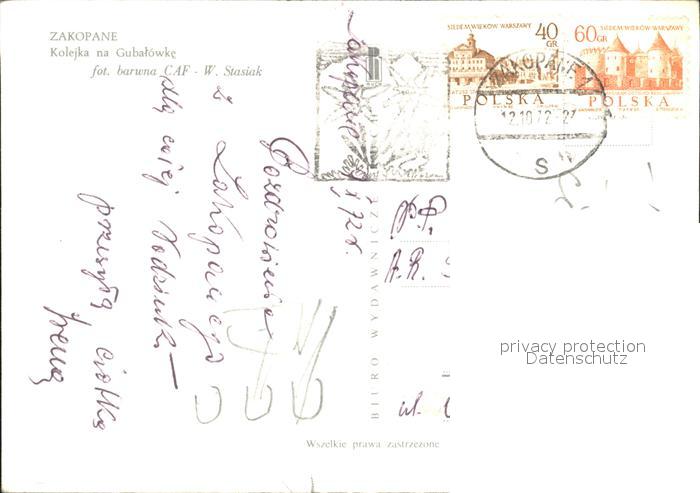 ZAKOPANE
Kolejka na Gubałówkę
fot. barwna CAF - W. Stasiak
SIEDEM WIEKÓW WARSZAWY
40 GR
POLSKA
SIEDEM WIEKÓW WARSZAWY
60 GR
POLSKA
ZAKOPANE
12.10.72-2
S
Zakopane
X 72 r.
Pozdrowienia
z Zakopanego
dla całej Rodzinki —
przesyła ciotka
Irena
BIURO WYDAWNICZ
P.P.
A.R.
ul.
Wszelkie prawa zastrzeżone
privacy protection
Datenschutz